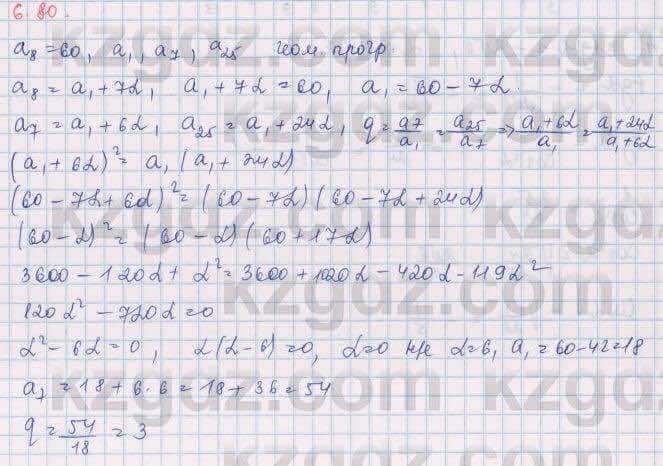 6.80.
a₈ = 60, a₁, a₇, a₂₅ геом. прогр.
a₈ = a₁ + 7d, a₁ + 7d = 60, a₁ = 60 − 7d.
a₇ = a₁ + 6d, a₂₅ = a₁ + 24d, q = a₇/a₁ = a₂₅/a₇ => (a₁ + 6d)/a₁ = (a₁ + 24d)/(a₁ + 6d)
(a₁ + 6d)² = a₁ (a₁ + 24d)
(60 − 7d + 6d)² = (60 − 7d) (60 − 7d + 24d)
(60 − d)² = (60 − d) (60 + 17d)
3600 − 120d + d² = 3600 + 1020d − 420d − 119d²
120d² − 720d = 0
d² − 6d = 0, d(d − 6) = 0, d = 0 н/е d = 6, a₁ = 60 − 42 = 18
a₇ = 18 + 6·6 = 18 + 36 = 54
q = 54/18 = 3
kzgdz.com